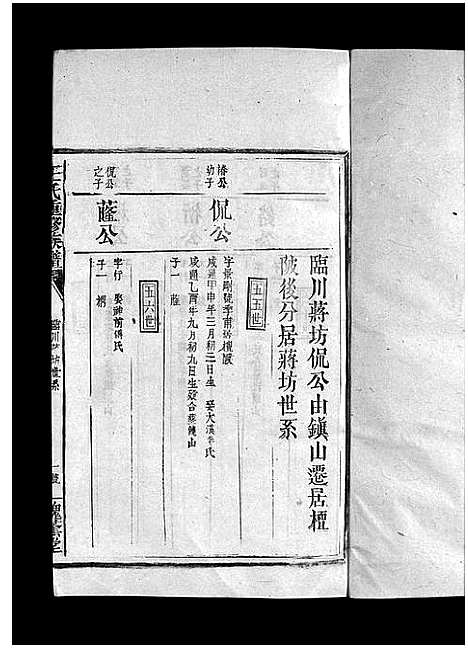 臨川蔣坊侃公由鎮山遷居檀
陂後分居蔣坊世系
五五世
椿公
幼子
侃公
字景剛號季甫遷檀陂
咸通甲申年三月初三日生 娶大溪李氏
咸通乙酉年九月初九日生 歿合葬鎮山
子一 蕯
五六世
侃公
之子
蕯公
字行 娶神前傅氏
子一 栩
王氏重修族譜
一號